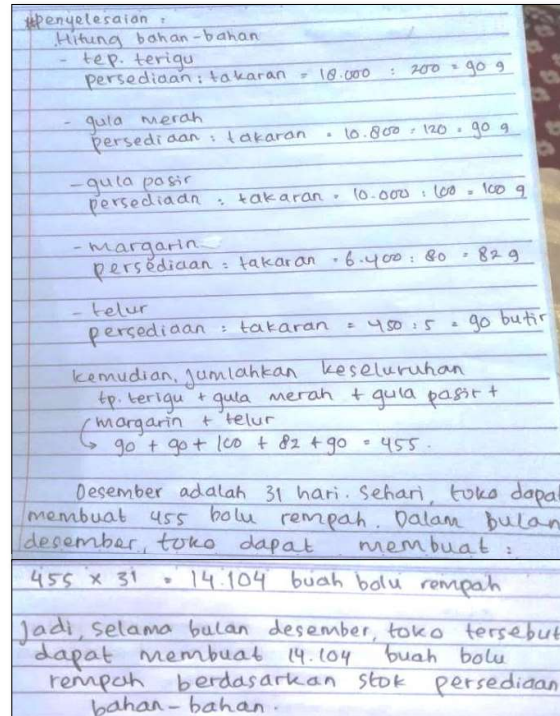 #Penyelesaian :
Hitung bahan-bahan
- tep. terigu
persediaan : takaran = 18.000 : 200 = 90 g
- gula merah
persediaan : takaran = 10.800 : 120 = 90 g
- gula pasir
persediaan : takaran = 10.000 : 100 = 100 g
- margarin
persediaan : takaran = 6.400 : 80 = 82 g
- telur
persediaan : takaran = 450 : 5 = 90 butir
kemudian, jumlahkan keseluruhan
tp. terigu + gula merah + gula pasir +
margarin + telur
↳ 90 + 90 + 100 + 82 + 90 = 455.
Desember adalah 31 hari. Sehari, toko dapat
membuat 455 bolu rempah. Dalam bulan
desember, toko dapat membuat :
455 x 31 = 14.104 buah bolu rempah
Jadi, selama bulan desember, toko tersebut
dapat membuat 14.104 buah bolu
rempah berdasarkan stok persediaan
bahan-bahan.